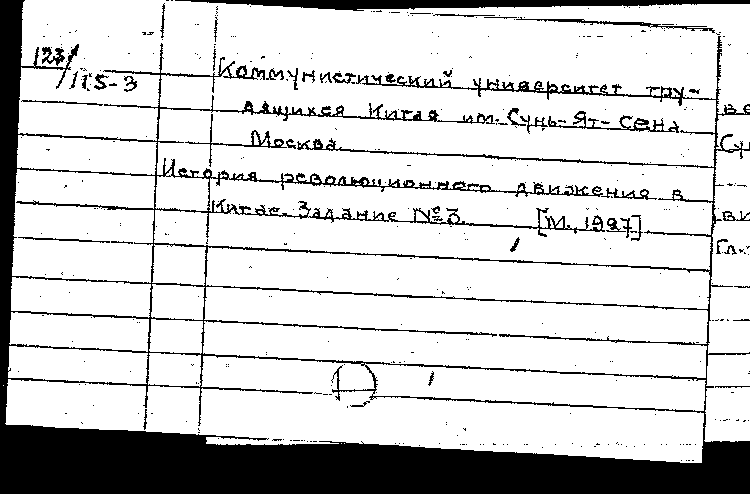 123/
115-3
Коммунистический университет тру-
дящихся Китая им. Сунь-Ят-Сена
Москва.
История революционного движения в
Китае. Задание №3. [М., 1927]